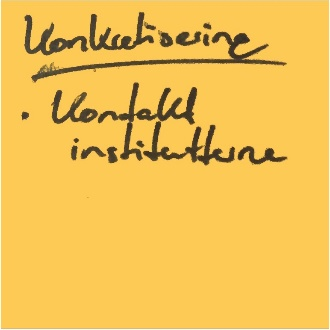 Konkretisering
• Kontakt
institutterne